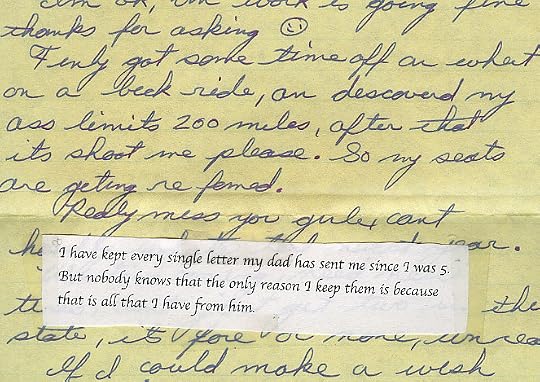 am ok, an work is going fine
thanks for asking
Finly got some time off an whent
on a beek ride, an descoverd my
ass limits 200 miles, after that
its shoot me please. So my seats
are geting re fomed.
Realy miss you girls, cant
I have kept every single letter my dad has sent me since I was 5.
But nobody knows that the only reason I keep them is because
that is all that I have from him.
the
state, it's
If I could make a wish